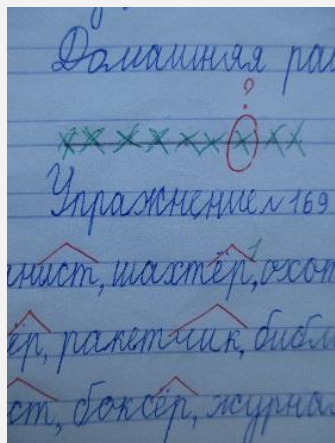 Домашняя рабо
?
Упражнение № 169
нист, шахтёр, охот
ёр, ракетчик, библ
ст, боксёр, журнал